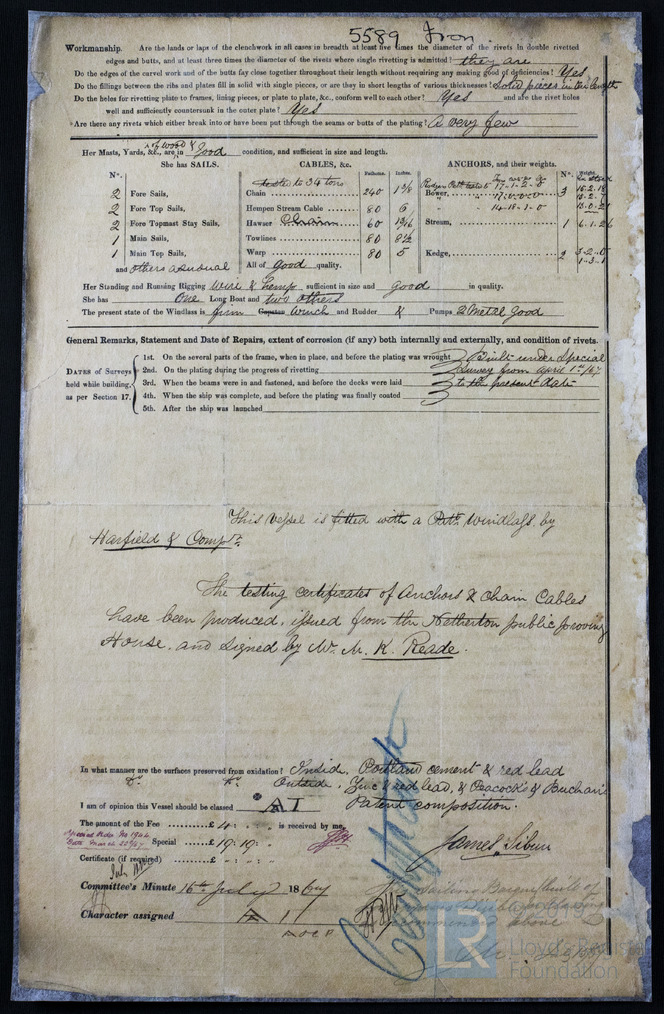 5589 Iron
Workmanship. Are the lands or laps of the clenchwork in all cases in breadth at least five times the diameter of the rivets in double rivetted
edges and butts, and at three times the diameter of the rivets where single rivetting is admitted? they are
Do the edges of the carvel work and of the butts fay close together throughout their length without requiring any making good of deficiencies? Yes
Do the fillings between the ribs and plates fill in solid with single pieces, or are they in short lengths of various thicknesses? Solid pieces in the length
Do the holes for rivetting plate to frames, lining pieces, or plate to plate, &c., conform well to each other? Yes and are the rivet holes
well and sufficiently countersunk in the outer plate? Yes
Are there any rivets which either break into or have been put through the seams or butts of the plating? A very few
Her Masts, Yards, &c., are in good condition, and sufficient in size and length.
She has SAILS. CABLES, &c. Fathoms. Inches. ANCHORS, and their weights. Nº. Weight
Nº. tested to 34 tons
2 Fore Sails, Chain 240 Bower, 3
2 Fore Top Sails, Hempen Stream Cable 80 6
2 Fore Topmast Stay Sails, Hawser Chain 60 Stream, 1
1 Main Sails, Towlines 80
1 Main Top Sails, Warp 80 5 Kedge, 2
and others as usual All of good quality.
Her Standing and Running Rigging Wire & hemp sufficient in size and good in quality.
She has one Long Boat and two others
The present state of the Windlass is firm Capstan Winch and Rudder & Pumps 2 Metal good
General Remarks, Statement and Date of Repairs, extent of corrosion (if any) both internally and externally, and condition of rivets.
DATES of Surveys held while building, as per Section 17.
1st. On the several parts of the frame, when in place, and before the plating was wrought Built under Special
2nd. On the plating during the progress of rivetting Survey from April 1st/67
3rd. When the beams were in and fastened, and before the decks were laid to the present date
4th. When the ship was complete, and before the plating was finally coated
5th. After the ship was launched
This Vessel is fitted with a Patt. Windlass by
Harfield & Compy.
The testing certificates of Anchors & Chain Cables
have been produced, issued from the Netherton public proving
House, and signed by Mr. M. K. Reade.
In what manner are the surfaces preserved from oxidation? Insid. Portland cement & red lead
Do. Do. Outside. Zinc & red lead, & Peacock's & Buchan's
I am of opinion this Vessel should be classed A1 Patent composition.
The amount of the Fee £ 4 : : is received by me,
Special £ 19 : 19 :
Certificate (if required) £ : :
James Sibun
Committee's Minute 16th July 1867
Character assigned A 1
Lloyd's Register
Foundation
LR